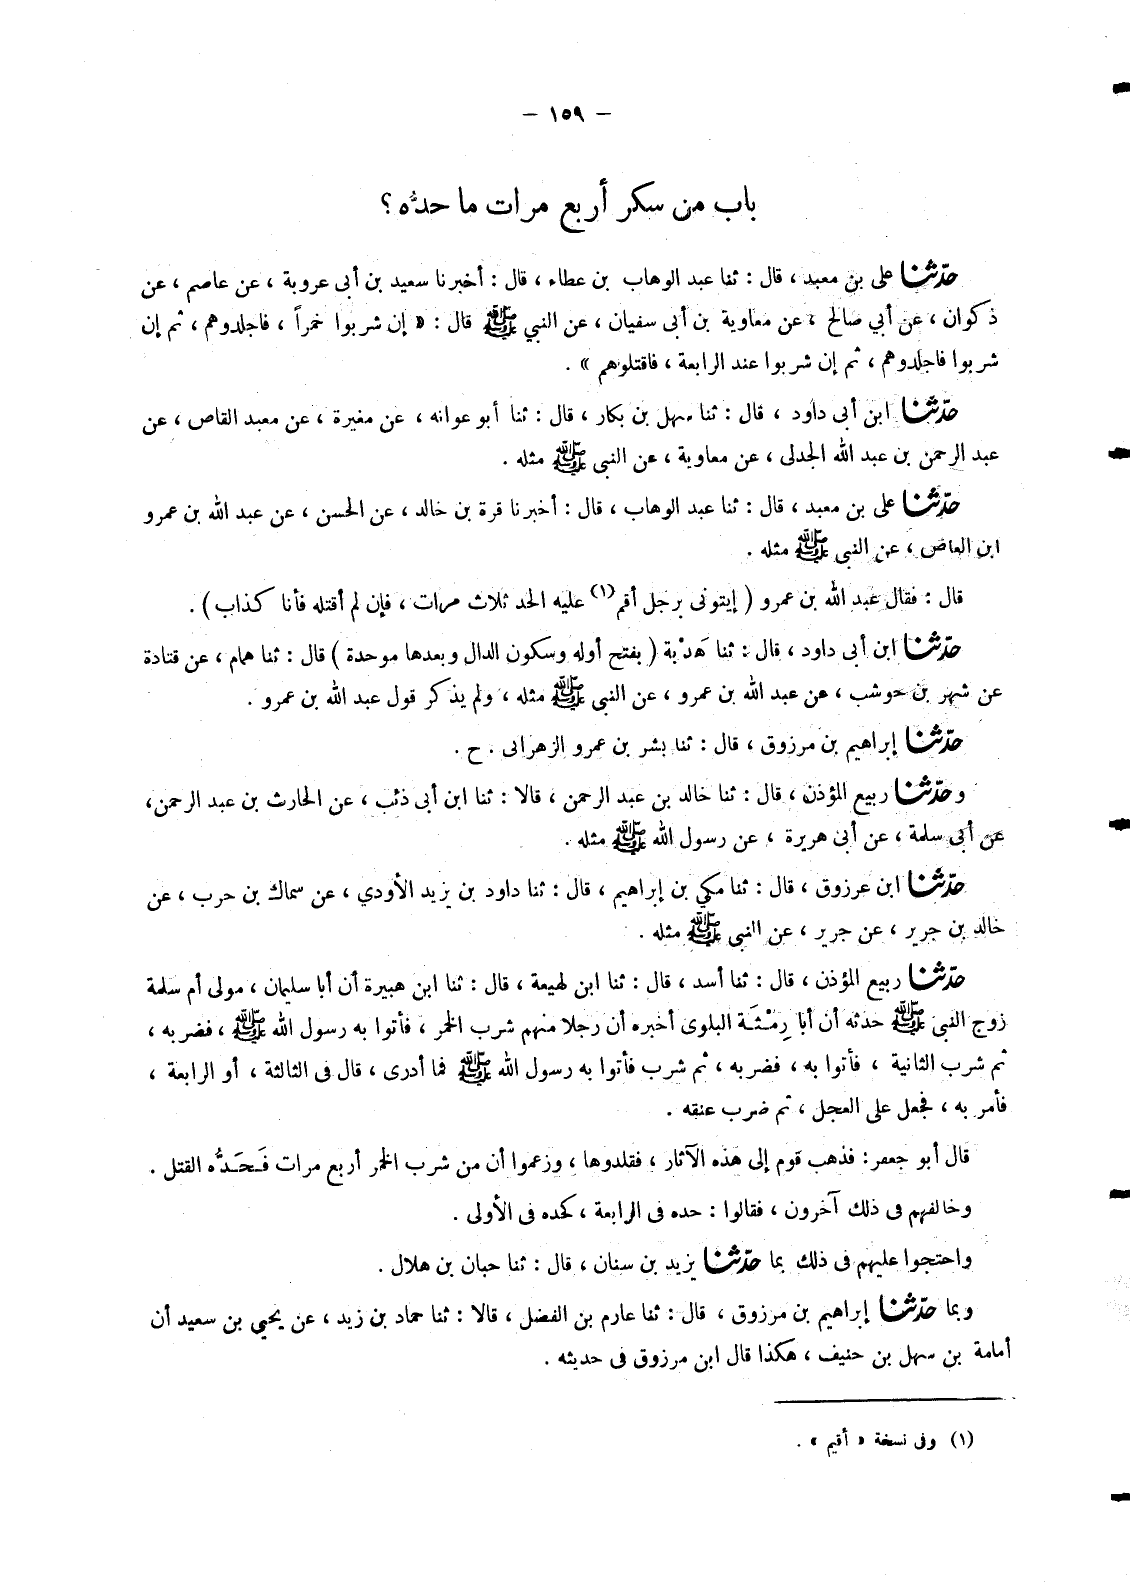 — ١٥٩ —
باب من سكر أربع مرات ما حدُّه ؟
حدّثنا على بن معبد ، قال : ثنا عبد الوهاب بن عطاء ، قال : أخبرنا سعيد بن أبى عروبة ، عن عاصم ، عن
ذكوان ، عن أبي صالح ، عن معاوية بن أبى سفيان ، عن النبي ﷺ قال : « إن شربوا خمراً ، فاجلدوهم ، ثم إن
شربوا فاجلدوهم ، ثم إن شربوا عند الرابعة ، فاقتلوهم » .
حدّثنا ابن أبى داود ، قال : ثنا سهل بن بكار ، قال : ثنا أبو عوانه ، عن مغيرة ، عن معبد القاص ، عن
عبد الرحمن بن عبد الله الجدلى ، عن معاوية ، عن النبى ﷺ مثله .
حدّثنا على بن معبد ، قال : ثنا عبد الوهاب ، قال : أخبرنا قرة بن خالد ، عن الحسن ، عن عبد الله بن عمرو
ابن العاص ، عن النبى ﷺ مثله .
قال : فقال عبد الله بن عمرو ( إيتونى برجل أقم(١) عليه الحد ثلاث مرات ، فإن لم أقتله فأنا كذاب ) .
حدّثنا ابن أبى داود ، قال : ثنا هَدْبة ( بفتح أوله وسكون الدال وبعدها موحدة ) قال : ثنا همام ، عن قتادة
عن شهر بن حوشب ، عن عبد الله بن عمرو ، عن النبى ﷺ مثله ، ولم يذكر قول عبد الله بن عمرو .
حدّثنا إبراهيم بن مرزوق ، قال : ثنا بشر بن عمرو الزهرانى . ح .
وحدّثنا ربيع المؤذن ، قال : ثنا خالد بن عبد الرحمن ، قالا : ثنا ابن أبى ذئب ، عن الحارث بن عبد الرحمن،
عن أبى سلمة ، عن أبى هريرة ، عن رسول الله ﷺ مثله .
حدّثنا ابن عرزوق ، قال : ثنا مكي بن إبراهيم ، قال : ثنا داود بن يزيد الأودي ، عن سماك بن حرب ، عن
خالد بن جرير ، عن جرير ، عن النبى ﷺ مثله .
حدّثنا ربيع المؤذن ، قال : ثنا أسد ، قال : ثنا ابن لهيعة ، قال : ثنا ابن هبيرة أن أبا سليمان ، مولى أم سلمة
زوج النبى ﷺ حدثه أن أبا رِمْثَـة البلوى أخبره أن رجلا منهم شرب الخمر ، فأتوا به رسول الله ﷺ ، فضربه ،
ثم شرب الثانية ، فأتوا به ، فضربه ، ثم شرب فأتوا به رسول الله ﷺ فما أدرى ، قال فى الثالثة ، أو الرابعة ،
فأمر به ، فجعل على العجل ، ثم ضرب عنقه .
قال أبو جعفر : فذهب قوم إلى هذه الآثار ، فقلدوها ، وزعموا أن من شرب الخمر أربع مرات فَـحَـدُّه القتل .
وخالفهم فى ذلك آخرون ، فقالوا : حده فى الرابعة ، كحده فى الأولى .
واحتجوا عليهم فى ذلك بما حدّثنا يزيد بن سنان ، قال : ثنا حبان بن هلال .
وبما حدّثنا إبراهيم بن مرزوق ، قال : ثنا عارم بن الفضل ، قالا : ثنا حماد بن زيد ، عن يحيي بن سعيد أن
أمامة بن سهل بن حنيف ، هكذا قال ابن مرزوق فى حديثه .
(١) وفى نسخة « أقيم » .